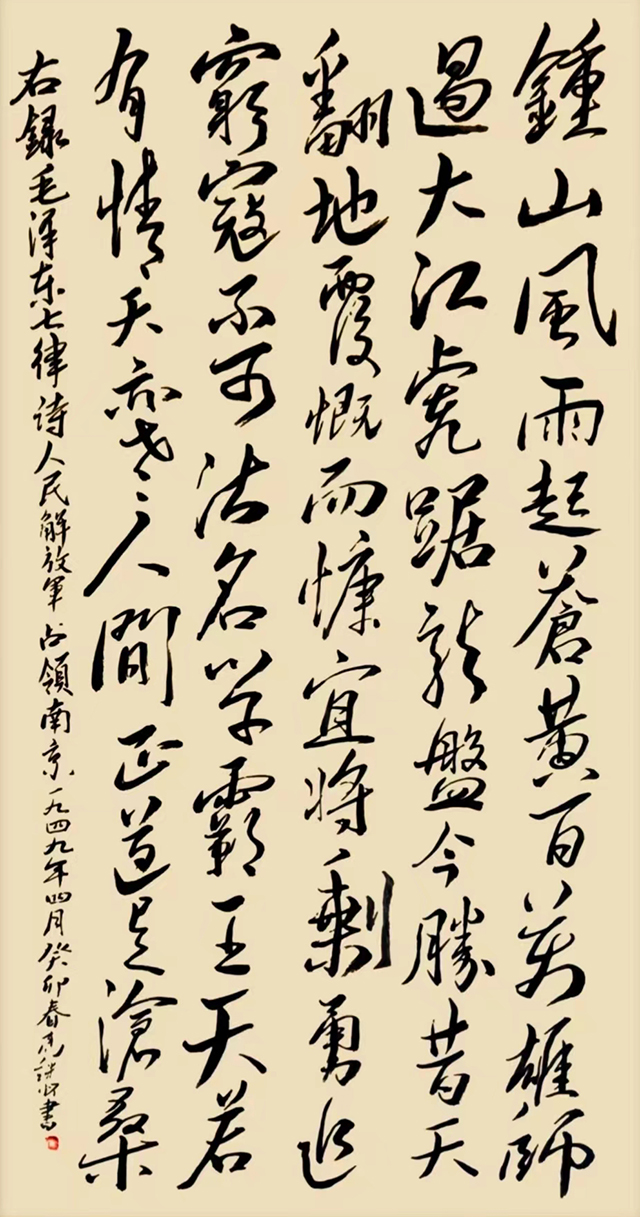 鍾山風雨起蒼黃百萬雄師
過大江虎踞龍盤今勝昔天
翻地覆慨而慷宜将剩勇追
窮寇不可沽名学霸王天若
有情天亦老人間正道是滄桑
右録毛泽东七律诗人民解放軍占領南京一九四九年四月癸卯春書